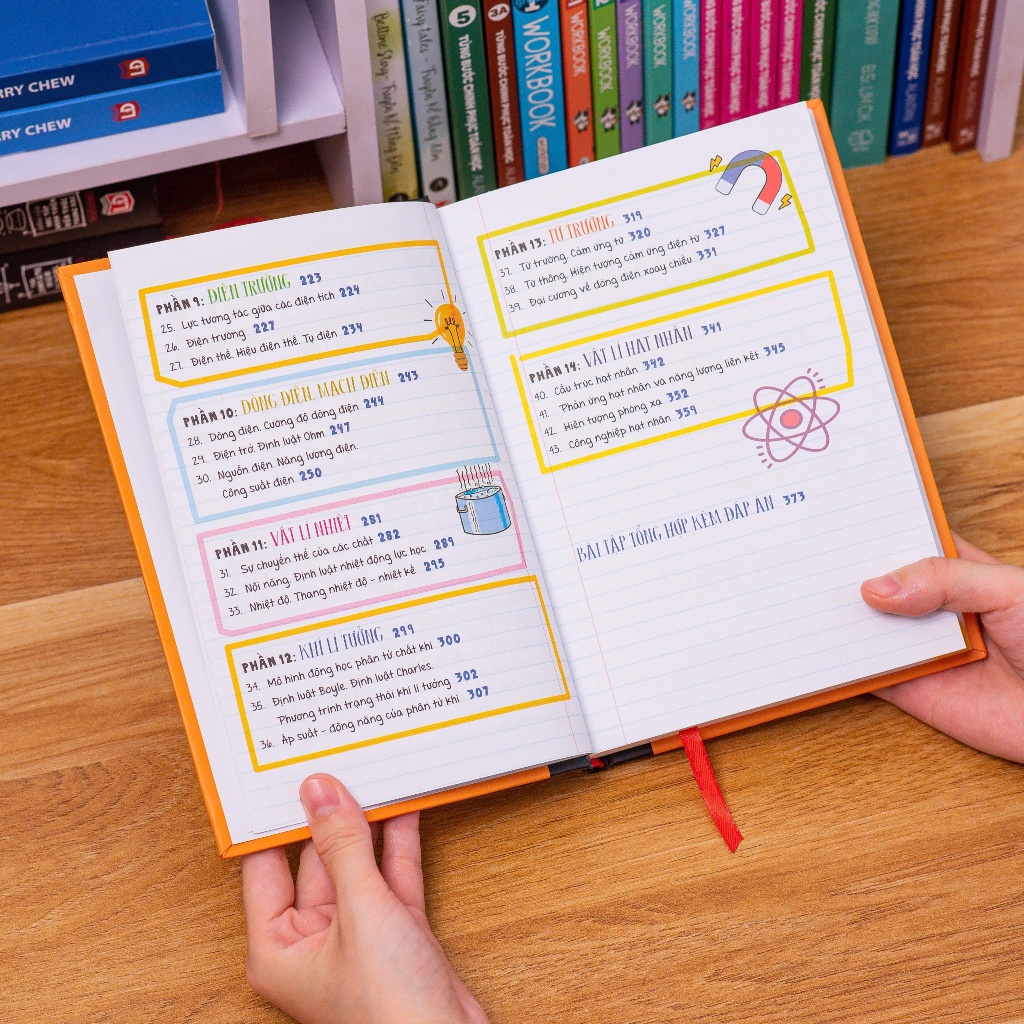 RRY CHEW
LD
RRY CHEW
LD
Bedtime Story - Truyện kể
Fairy tales - Truyện kể
5 TỪNG BƯỚC CHINH PHỤC TOÁN HỌC
3A TỪNG BƯỚC CHINH PHỤC TOÁN HỌC
WORKBOOK
WORKBOOK
WORKBOOK
WORKBOOK
WORKBOOK
WORKBOOK
PHẦN 9: ĐIỆN TRƯỜNG 223
25. Lực tương tác giữa các điện tích 224
26. Điện trường 227
27. Điện thế. Hiệu điện thế. Tụ điện 234
PHẦN 10: DÒNG ĐIỆN, MẠCH ĐIỆN 243
28. Dòng điện. Cường độ dòng điện 244
29. Điện trở. Định luật Ohm 247
30. Nguồn điện. Năng lượng điện.
Công suất điện 250
PHẦN 11: VẬT LÍ NHIỆT 281
31. Sự chuyển thể của các chất 282
32. Nội năng. Định luật nhiệt động lực học 289
33. Nhiệt độ. Thang nhiệt độ - nhiệt kế 295
PHẦN 12: KHÍ LÍ TƯỞNG 299
34. Mô hình động học phân tử chất khí 300
35. Định luật Boyle. Định luật Charles.
Phương trình trạng thái khí lí tưởng 302
36. Áp suất - động năng của phân tử khí 307
PHẦN 13: TỪ TRƯỜNG 319
37. Từ trường. Cảm ứng từ 320
38. Từ thông. Hiện tượng cảm ứng điện từ 327
39. Đại cương về dòng điện xoay chiều 331
PHẦN 14: VẬT LÍ HẠT NHÂN 341
40. Cấu trúc hạt nhân 342
41. Phản ứng hạt nhân và năng lượng liên kết 345
42. Hiện tượng phóng xạ 352
43. Công nghiệp hạt nhân 359
BÀI TẬP TỔNG HỢP KÈM ĐÁP ÁN 373